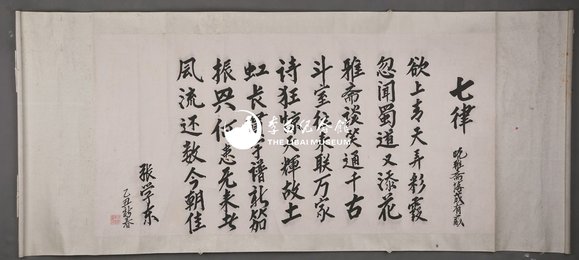 七律
晚雅斋有感
欲上青天弄彩霞
忽闻蜀道又添花
雅斋谈笑通千古
斗室往来联万家
诗狂辉故土
虹长谱新笳
振兴何无来者
风流还数今朝佳
张学东
乙丑新春
李白纪念馆
THE LIBAI MUSEUM